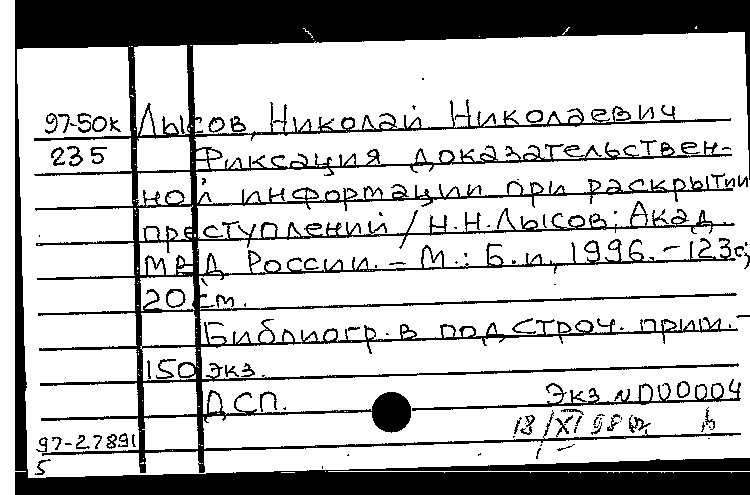 97-50к Лысов, Николай Николаевич
235 Фиксация доказательствен-
ной информации при раскрытии
преступлений / Н.Н.Лысов; Акад.
МВД России. – М.: Б.и., 1996. – 123с;
20 см.
Библиогр. в подстроч. прим. –
150 экз.
ДСП. Экз N000004
18/XI 98
97-27891
5